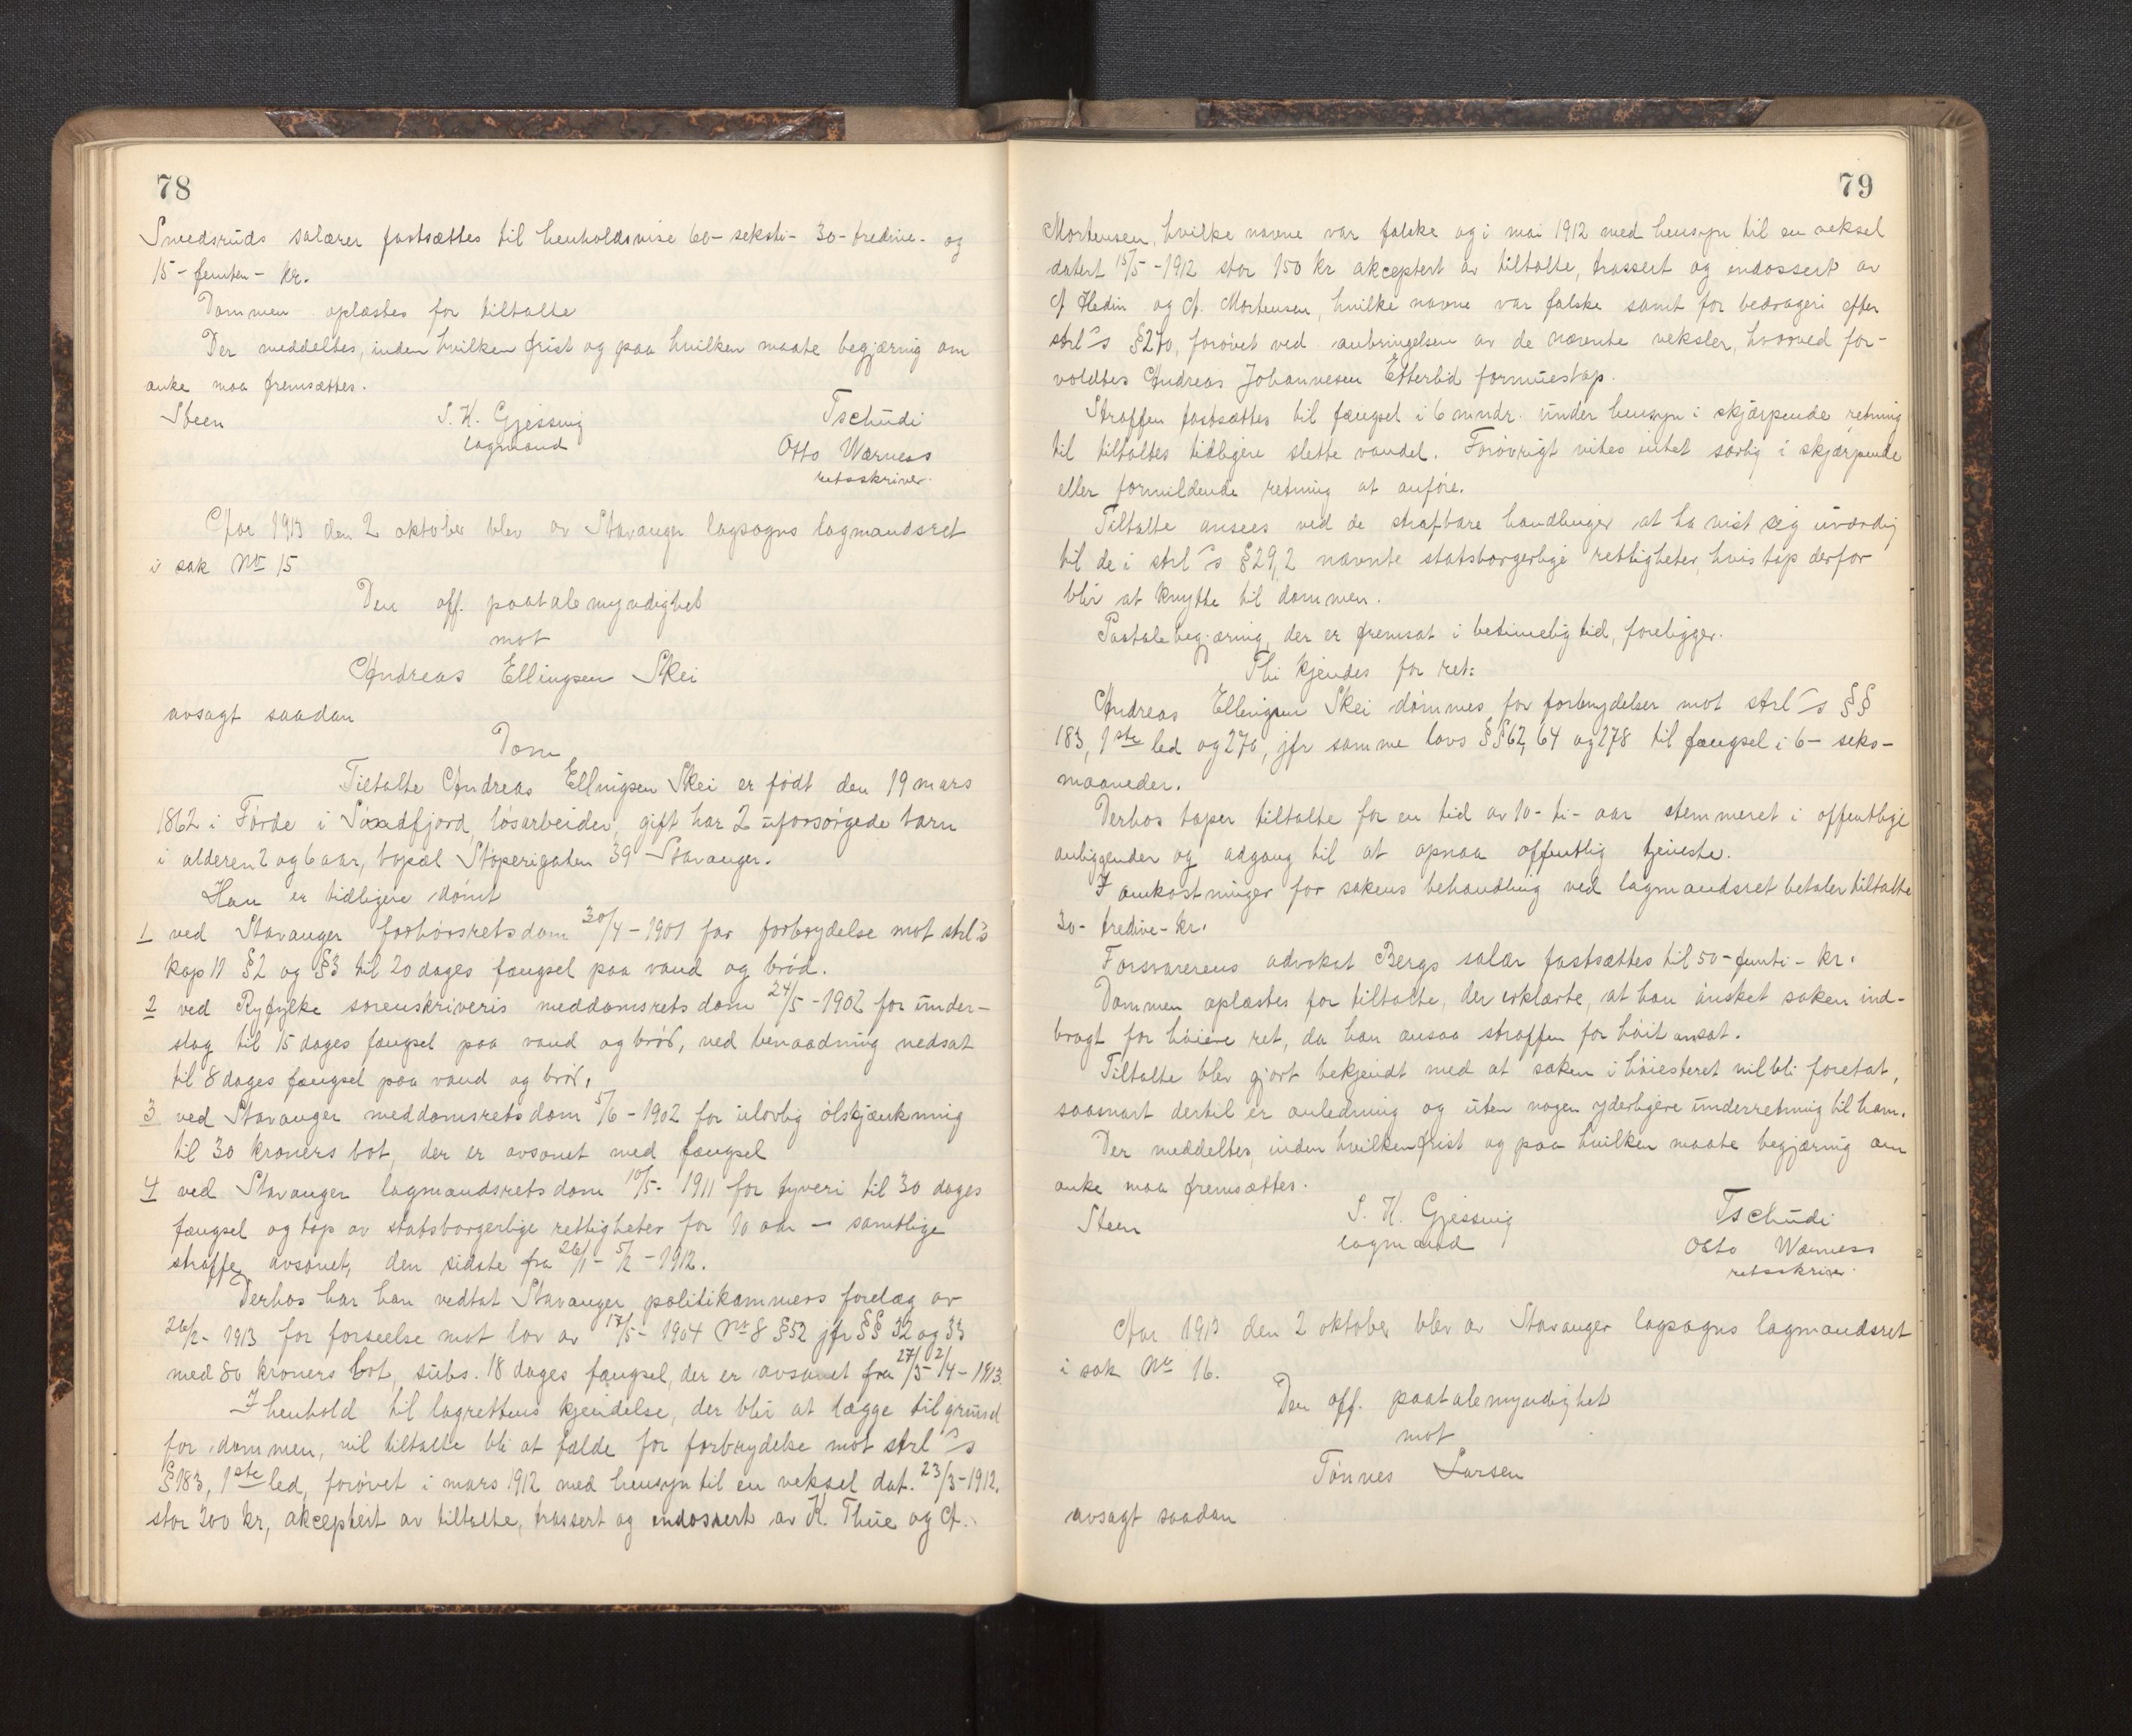 78
Smedsruds salærer fastsættes til henholdsvise 60- seksti- 30- tredive- og
15- femten- kr.
Dommen oplæstes for tiltalte
Der meddeltes, inden hvilken frist og paa hvilken maate begjæring om
anke maa fremsættes.
Steen S. K. Gjessing Tschudi
lagmand Otto Wærness
retsskriver.
Aar 1913 den 2 oktober blev av Stavanger lagsogns lagmandsret
i sak Nr 15
Den off. paatalemyndighet
mot
Andreas Ellingsen Skei
avsagt saadan
Dom
Tiltalte Andreas Ellingsen Skei er født den 19 mars
1862 i Førde i Søndfjord, løsarbeider, gift har 2 uforsørgede barn
i alderen 2 og 6 aar, bopæl Støperigaten 39 Stavanger.
Han er tidligere dømt
1 ved Stavanger forhørsretsdom 30/4-1901 for forbrydelse mot strl's
kap 19 §2 og §3 til 20 dages fængsel paa vand og brød.
2 ved Ryfylke sorenskriveris meddomsretsdom 24/5-1902 for under-
slag til 15 dages fængsel paa vand og brød, ved benaadning nedsat
til 8 dages fængsel paa vand og brød,
3 ved Stavanger meddomsretsdom 5/6-1902 for ulovlig ølskjænkning
til 30 kroners bot, der er avsonet med fængsel
4 ved Stavanger lagmandsretsdom 10/5- 1911 for tyveri til 30 dages
fængsel og tap av statsborgerlige rettigheter for 10 aar - samtlige
straffe avsonet, den sidste fra 26/1- 5/2-1912.
Derhos har han vedtat Stavanger politikammers forelæg av
26/2- 1913 for forseelse mot lov av 17/5- 1904 Nr 8 §52 jfr §§ 32 og 33
med 80 kroners bot, subs. 18 dages fængsel, der er avsonet fra 27/3- 2/4- 1913.
I henhold til lagrettens kjendelse, der blir at lægge til grund
for dommen, vil tiltalte bli at fælde for forbrydelse mot strl's
§183, 1ste led, forøvet i mars 1912 med hensyn til en veksel dat. 23/3-1912.
stor 200 kr, akceptert av tiltalte, trassert og endossert av K. Thue og A.
79
Mortensen, hvilke navne var falske og i mai 1912 med hensyn til en veksel
datert 15/5-1912 stor 150 kr akceptert av tiltalte, trassert og endossert av
A Hedin og A. Mortensen, hvilke navne var falske samt for bedrageri efter
strl's §270, forøvet ved anbringelsen av de nævnte veksler, hvorved for-
voldtes Andreas Johannesen Efterlid formuestap.
Straffen fastsættes til fængsel i 6 mndr. under hensyn i skjærpende retning
til tiltaltes tidligere slette vandel. Forøvrigt vites intet særlig i skjærpende
eller formildende retning at anføre.
Tiltalte ansees ved de strafbare handlinger at ha vist sig uværdig
til de i strl's §29,2 nævnte statsborgerlige rettigheter, hvis tap derfor
blir at knytte til dommen.
Paatalebegjæring, der er fremsat i betimelig tid, foreligger.
Thi kjendes for ret:
Andreas Ellingsen Skei dømmes for forbrydelser mot strl's §§
183, 1ste led og 270, jfr samme lovs §§62, 64 og 278 til fængsel i 6- seks-
maaneder.
Derhos taper tiltalte for en tid av 10- ti- aar stemmeret i offentlige
anliggender og adgang til at opnaa offentlig tjeneste.
I omkostninger for sakens behandling ved lagmandsret betaler tiltalte
30- tredive- kr.
Forsvarerens advokat Bergs salær fastsættes til 50- femti- kr.
Dommen oplæstes for tiltalte, der erklærte, at han ønsket saken ind-
bragt for høiere ret, da han ansaa straffen for høit ansat.
Tiltalte blev gjort bekjendt med at saken i høiesteret vil bli foretat,
saasnart dertil er anledning og uten nogen yderligere underretning til ham.
Der meddeltes, inden hvilken frist og paa hvilken maate begjæring om
anke maa fremsættes.
Steen S. K. Gjessing Tschudi
lagmand Otto Wærness
retsskriver.
Aar 1913 den 2 oktober blev av Stavanger lagsogns lagmandsret
i sak Nr 16.
Den off. paatalemyndighet
mot
Tønnes Larsen
avsagt saadan